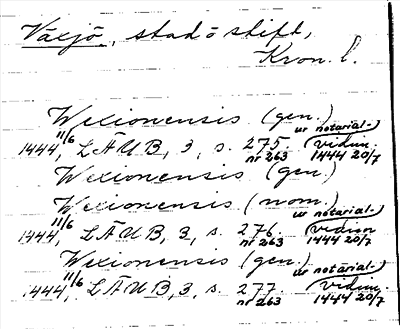 Växjö, stad o stift,
Kron. l.
Wexionensis (gen.)
1444 11/6, LÄUB, 3, s. 275. (vidim. ur notarial-) nr 263 1444 20/7
Wexionensis (gen.)
Wexionensis (nom.)
1444 11/6, LÄUB, 3, s. 276. (vidim ur notarial-) nr 263 1444 20/7
Wexionensis (gen.)
1444 11/6, LÄUB, 3, s. 277. (vidim. ur notarial-) nr 263 1444 20/7